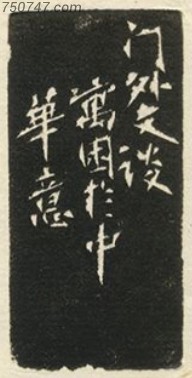 750747.com
门外文谈
寓困於中
華意